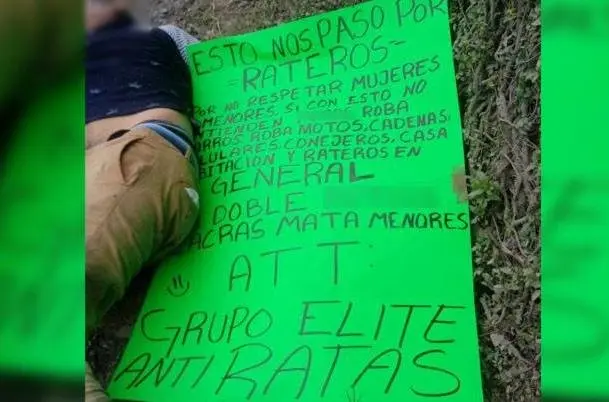 ESTO NOS PASO POR
=RATEROS=
POR NO RESPETAR MUJERES
MENORES, SI CON ESTO NO
ROBA
ROBA MOTOS, CADENAS,
CONEJEROS, CASA
Y RATEROS EN
GENERAL
DOBLE
MATA MENORES
ATT:
GRUPO ELITE
ANTI RATAS